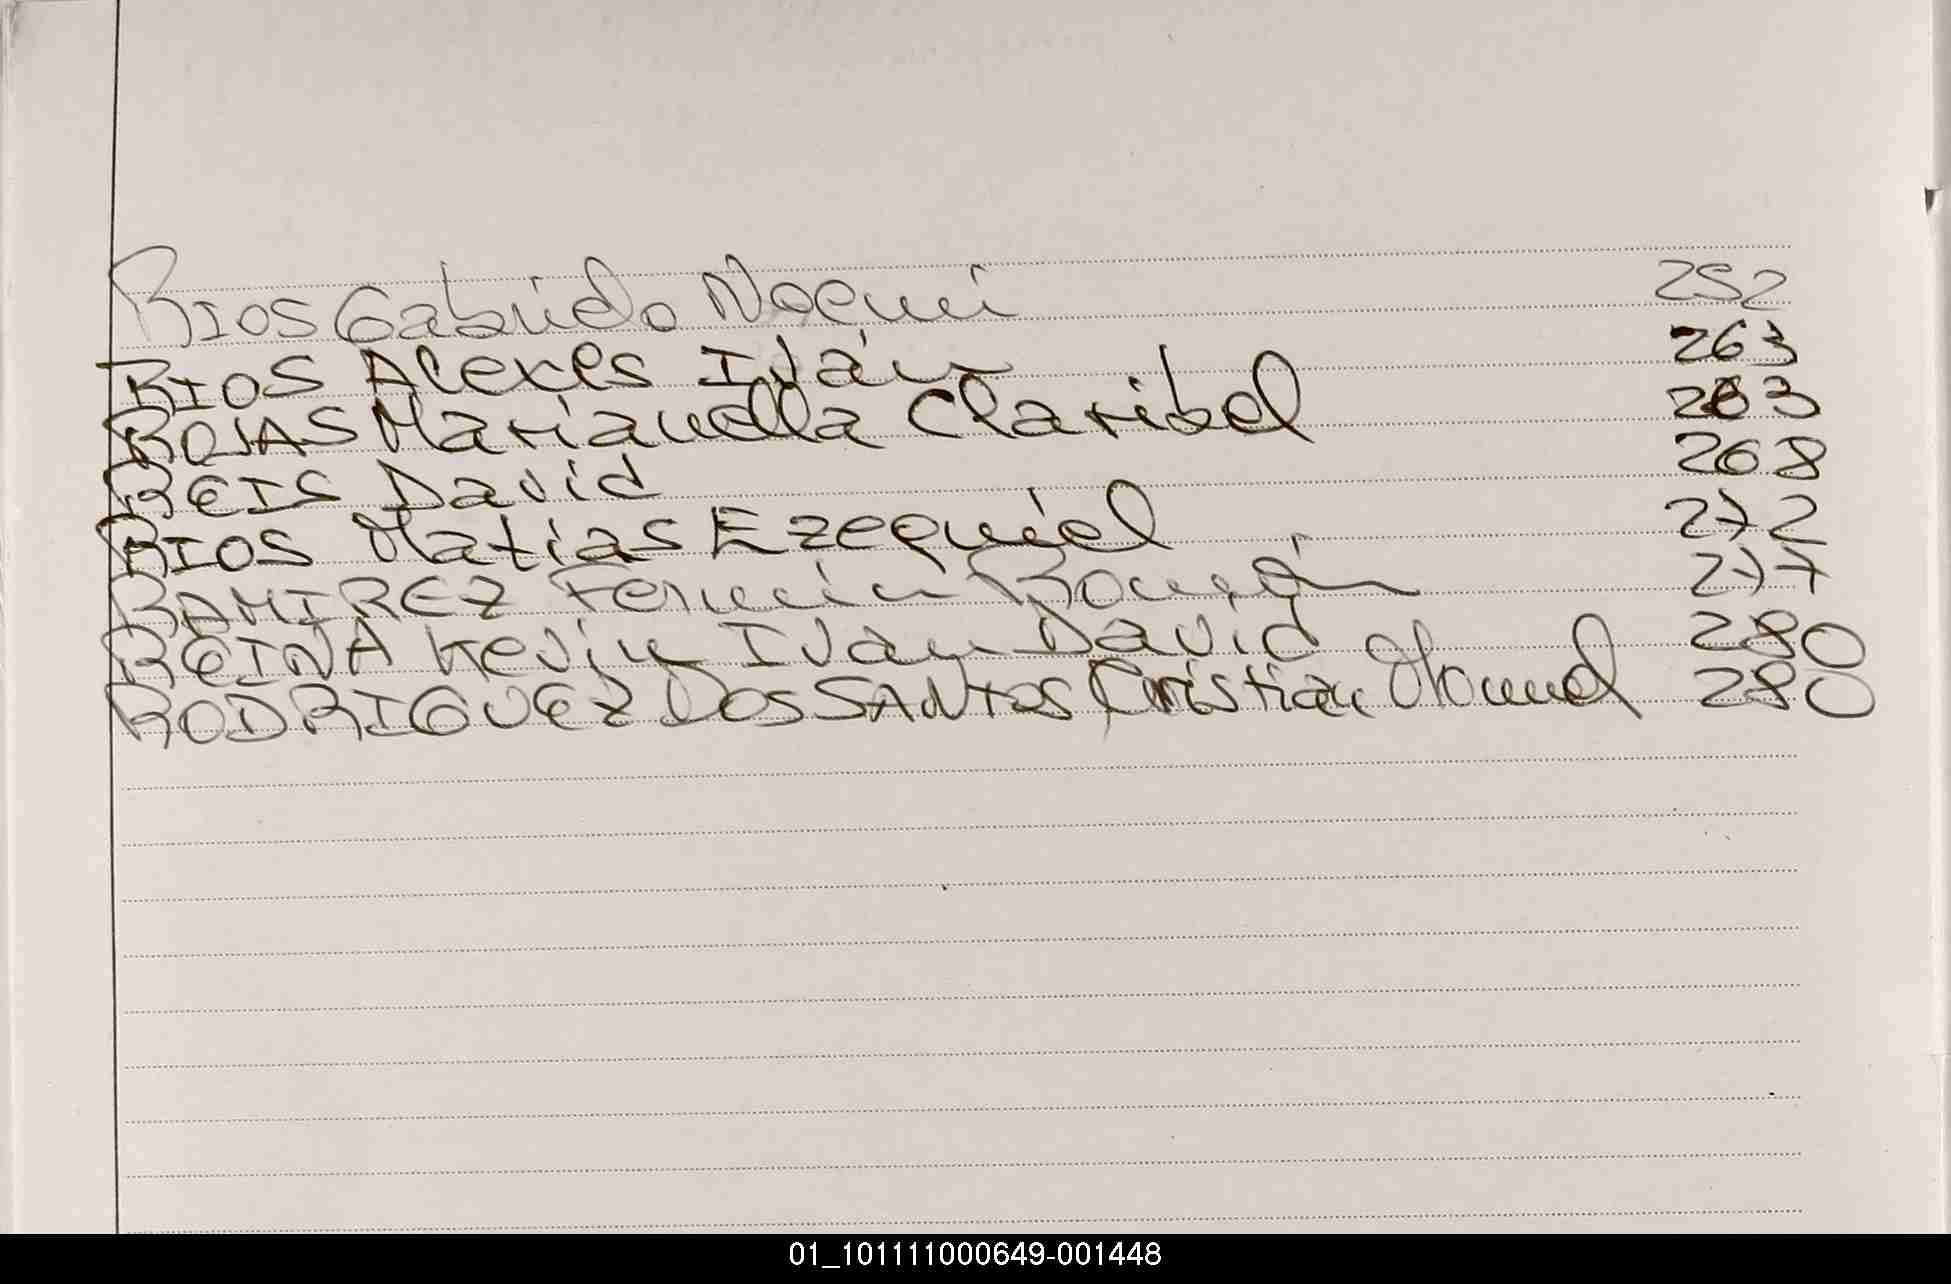 RIOS Gabriela Noemi 252
RIOS Alexes Iván 263
ROJAS Marianella Claribel 263
REIS David 268
RIOS Matias Ezequiel 272
RAMIREZ Fermin Román 277
REINA Kevin Ivan David 280
RODRIGUEZ DOS SANTOS Cristian 280
01_101111000649-001448